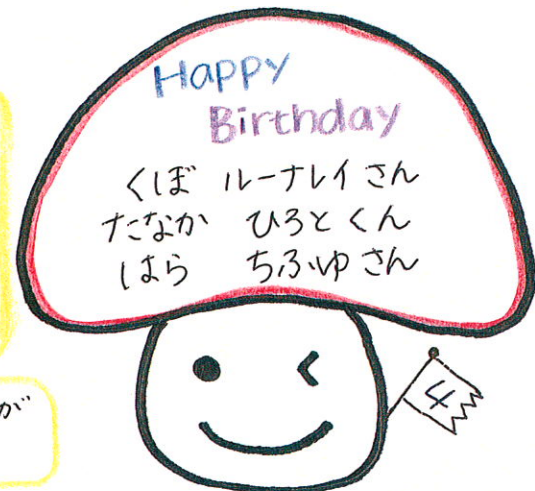 Happy
Birthday
くぼ ルーナレイさん
たなか ひろとくん
はら ちふゆさん
4
が